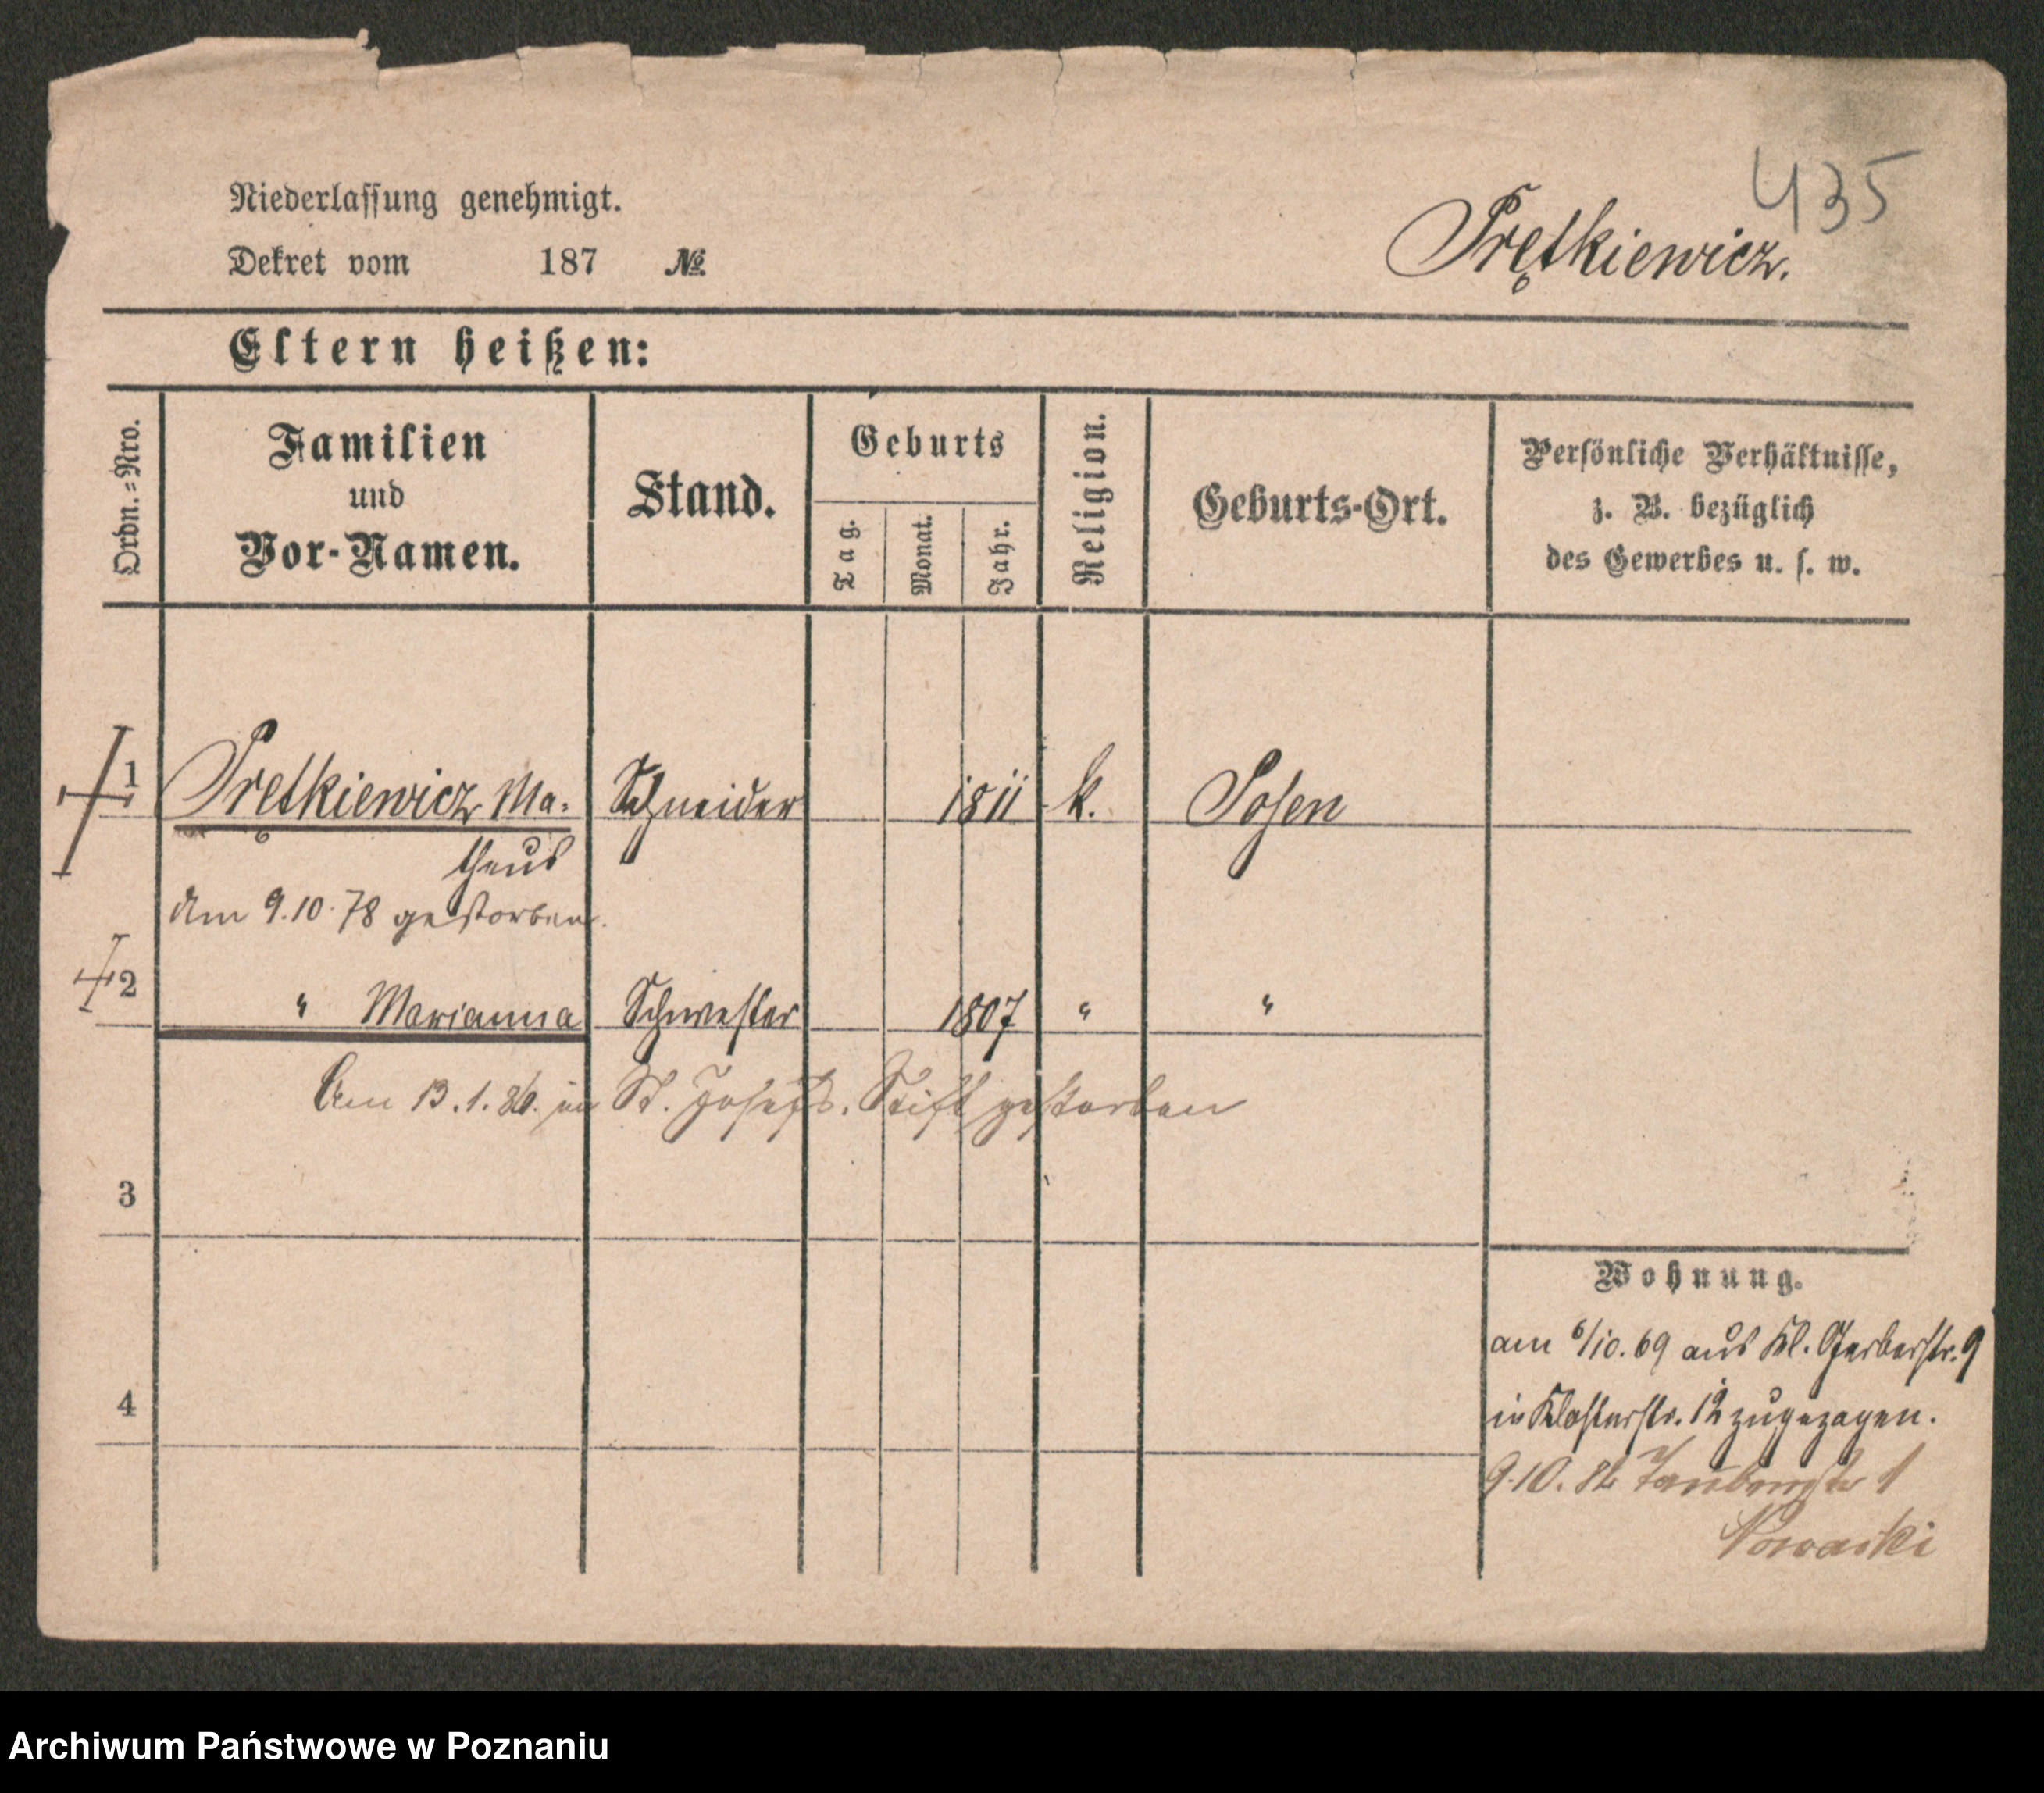 435
Niederlassung genehmigt.
Dekret vom 187 №
Prętkiewicz.
Eltern heißen:
Ordn.=Nro.
Familien
und
Vor-Namen.
Stand.
Geburts
Tag.
Monat.
Jahr.
Religion.
Geburts-Ort.
Persönliche Verhältnisse,
z. B. bezüglich
des Gewerbes u. s. w.
1 Prętkiewicz Ma- Schneider 1811 k. Posen
theus
Am 9.10.78 gestorben.
2 " Marianna Schwester 1807 " "
Am 13.1.86. im St. Josefs. Stift gestorben
3
4
Wohnung.
am 6/10.69 aus Kl. Gerberstr. 9
in Klosterstr. 12 zugezogen.
9.10. Taubenstr 1
Archiwum Państwowe w Poznaniu